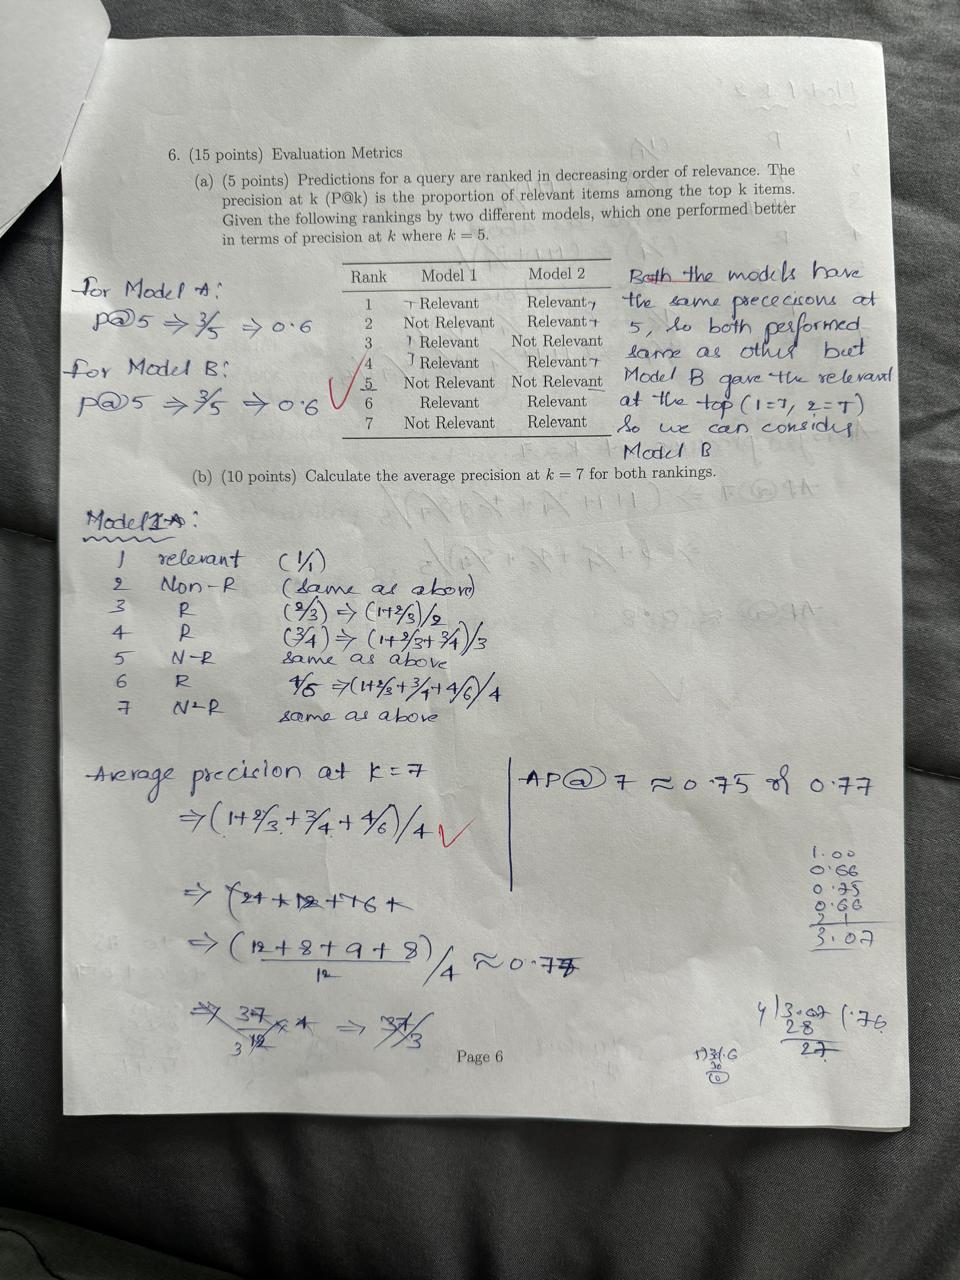 6. (15 points) Evaluation Metrics
(a) (5 points) Predictions for a query are ranked in decreasing order of relevance. The
precision at k (P@k) is the proportion of relevant items among the top k items.
Given the following rankings by two different models, which one performed better
in terms of precision at k where k = 5.
Rank Model 1 Model 2
1 Relevant Relevant
2 Not Relevant Relevant
3 Relevant Not Relevant
4 Relevant Relevant
5 Not Relevant Not Relevant
6 Relevant Relevant
7 Not Relevant Relevant
For Model A:
P@5 ⇒ 3/5 ⇒ 0.6
For Model B:
P@5 ⇒ 3/5 ⇒ 0.6
Both the models have
the same prececisons at
5, so both performed
same as other but
Model B gave the relevant
at the top (1=T, 2=T)
So we can consider
Model B
(b) (10 points) Calculate the average precision at k = 7 for both rankings.
Model A:
1 relevant (1/1)
2 Non-R (same as above)
3 R (2/3) ⇒ (1+2/3)/2
4 R (3/4) ⇒ (1+2/3+3/4)/3
5 N-R same as above
6 R ⇒ (1+2/3+3/4+4/6)/4
7 N-R same as above
Average precision at K=7
⇒ (1+2/3+3/4+4/6)/4
⇒ (12+8+9+8)/4 ≈ 0.77
12
⇒ 37/3
AP@7 ≈ 0.75 or 0.77
1.00
0.66
0.75
0.66
3.07
4)3.07(.76
28
27
Page 6